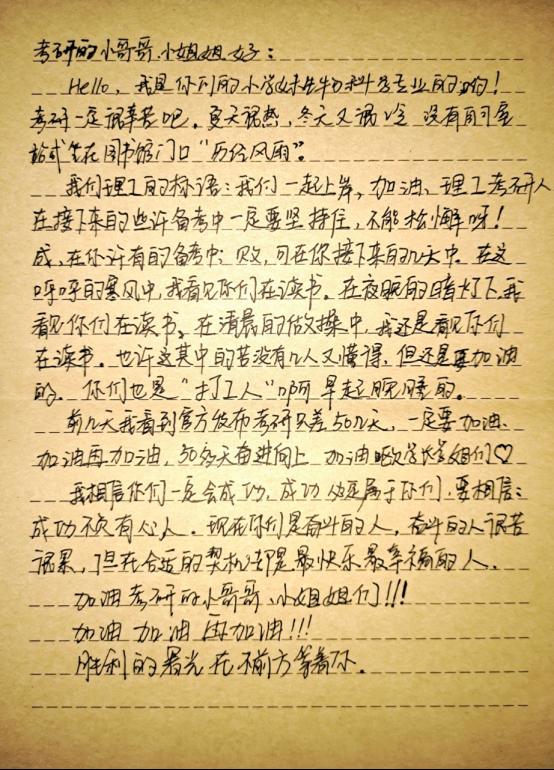 考研的小哥哥、小姐姐好：
Hello，我是你们的小学妹生物科学专业的哟！
考研一定很辛苦吧。夏天很热，冬天又很冷 没有自习室
给或坐在图书馆门口“历经风雨”。
我们理工的标语：我们一起上岸，加油、理工考研人
在接下来的些许备考中一定要坚持住，不能松懈呀！
成，在你许有的备考中；败，可在你接下来的几天中。在这
呼呼的寒风中，我看见你们在读书。在夜晚的暗灯下，我
看见你们在读书。在清晨的做操中，我还是看见你们
在读书。也许这其中的苦没有几人又懂得，但还是要加油
的。你们也是“打工人”啊 早起晚睡的。
前几天我看到官方发布考研只差50几天，一定要加油、
加油再加油，50多天奋进向上 加油呦学长学姐们♡
我相信你们一定会成功，成功必是属于你们，要相信：
成功不负有心人。现在你们是奋斗的人，奋斗的人很苦
很累，但在合适的契机却是最快乐最幸福的人。
加油 考研的小哥哥、小姐姐们!!!
加油 加油 再加油!!!
胜利的曙光在不前方等着你。